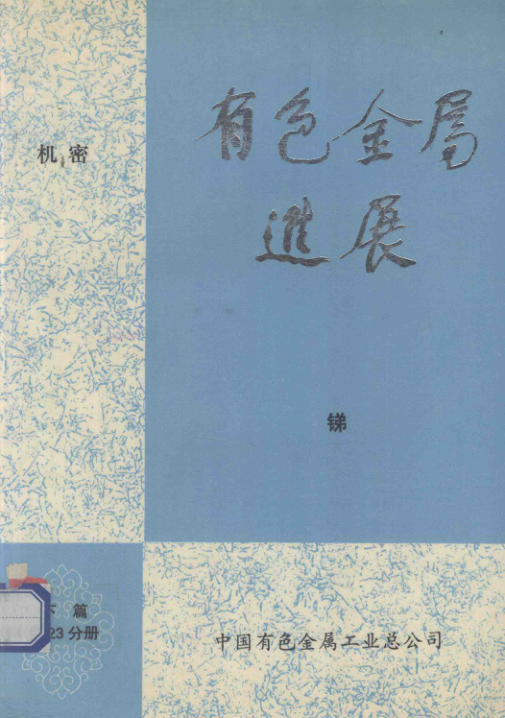 机密
有色金属
進展
锑
下篇
23分册
中国有色金属工业总公司